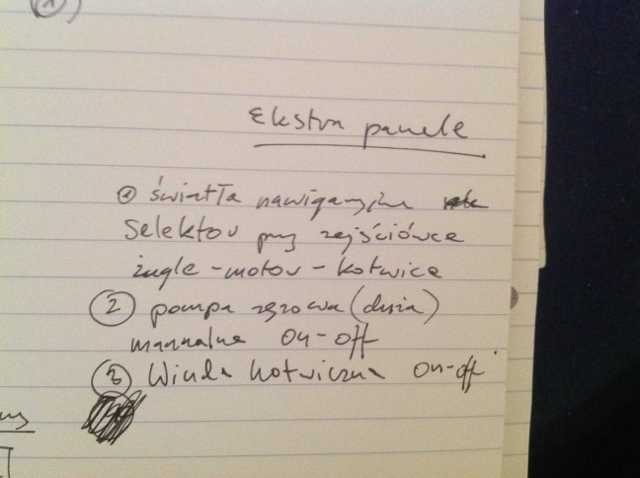 1)
Ekstra panele
① światła nawigacyjne
Selektor przy zejściówce
żagle - motor - kotwica
② pompa zęzowa (duża)
manualne on-off
③ Winda kotwiczna on-off